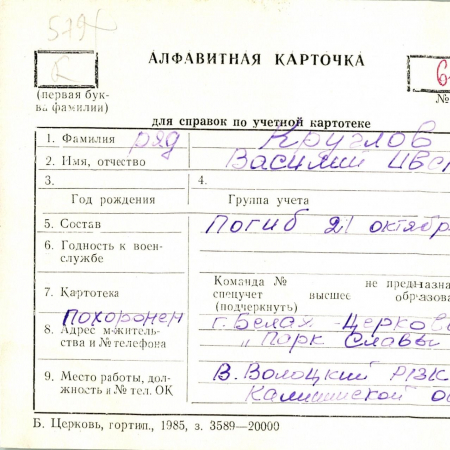 519
К
АЛФАВИТНАЯ КАРТОЧКА
6
(первая бук-
ва фамилии)
№
для справок по учетной картотеке
1. Фамилия ряд Круглов
2. Имя, отчество Василий Ив
3. 4.
Год рождения Группа учета
5. Состав Погиб 21 октябр
6. Годность к воен-
службе
Команда № не предназна
7. Картотека спецучет высшее образова
(подчеркнуть)
похоронен г. Белая-Церковь
8. Адрес м-житель-
ства и № телефона „Парк Славы
9. Место работы, дол- В. Волоцкий РВК
жность и № тел. ОК Калининской о
Б. Церковь, гортип., 1985, з. 3589—20000